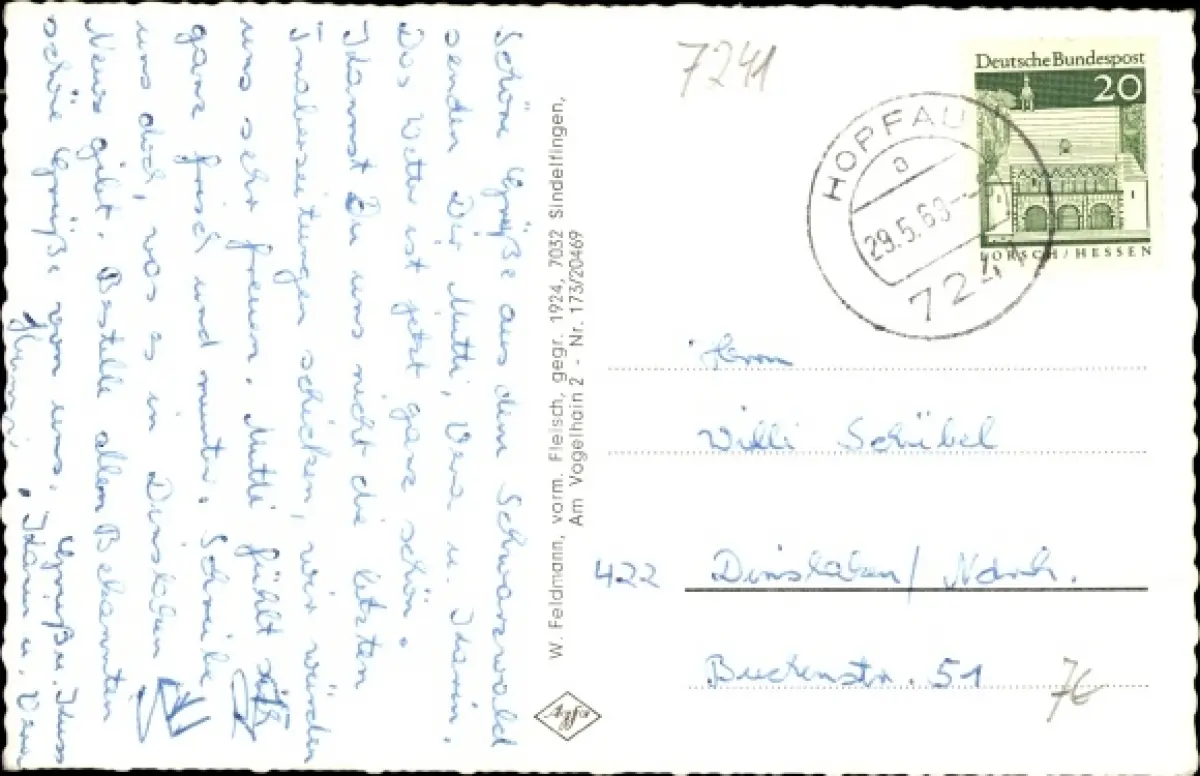 Schöne Grüße aus dem Schwarzwald
senden Dir Mutti, Vera u. Karin.
Das Wetter ist jetzt ganz schön.
Kannst Du uns nicht die letzten
Knoberzeitungen schicken, wir würden
uns sehr freuen. Mutti fühlt sich
ganz frisch und munter. Schreibe
uns doch, was es in Dinslaken
Neues gibt. Bestelle allen Bekannten
schöne Grüße von uns. Gruß u. Kuss
Karin u. Vera
W. Feldmann, vorm. Fleisch, gegr. 1924, 7032 Sindelfingen,
Am Vogelhain 2 - Nr. 173/20469
Agfa
7241
Deutsche Bundespost
20
LORSCH/HESSEN
HOPFAU
a
29.5.69
7241
Herrn
Willi Schübel
422 Dinslaken/Ndrrh.
Buchenstr. 51
7€